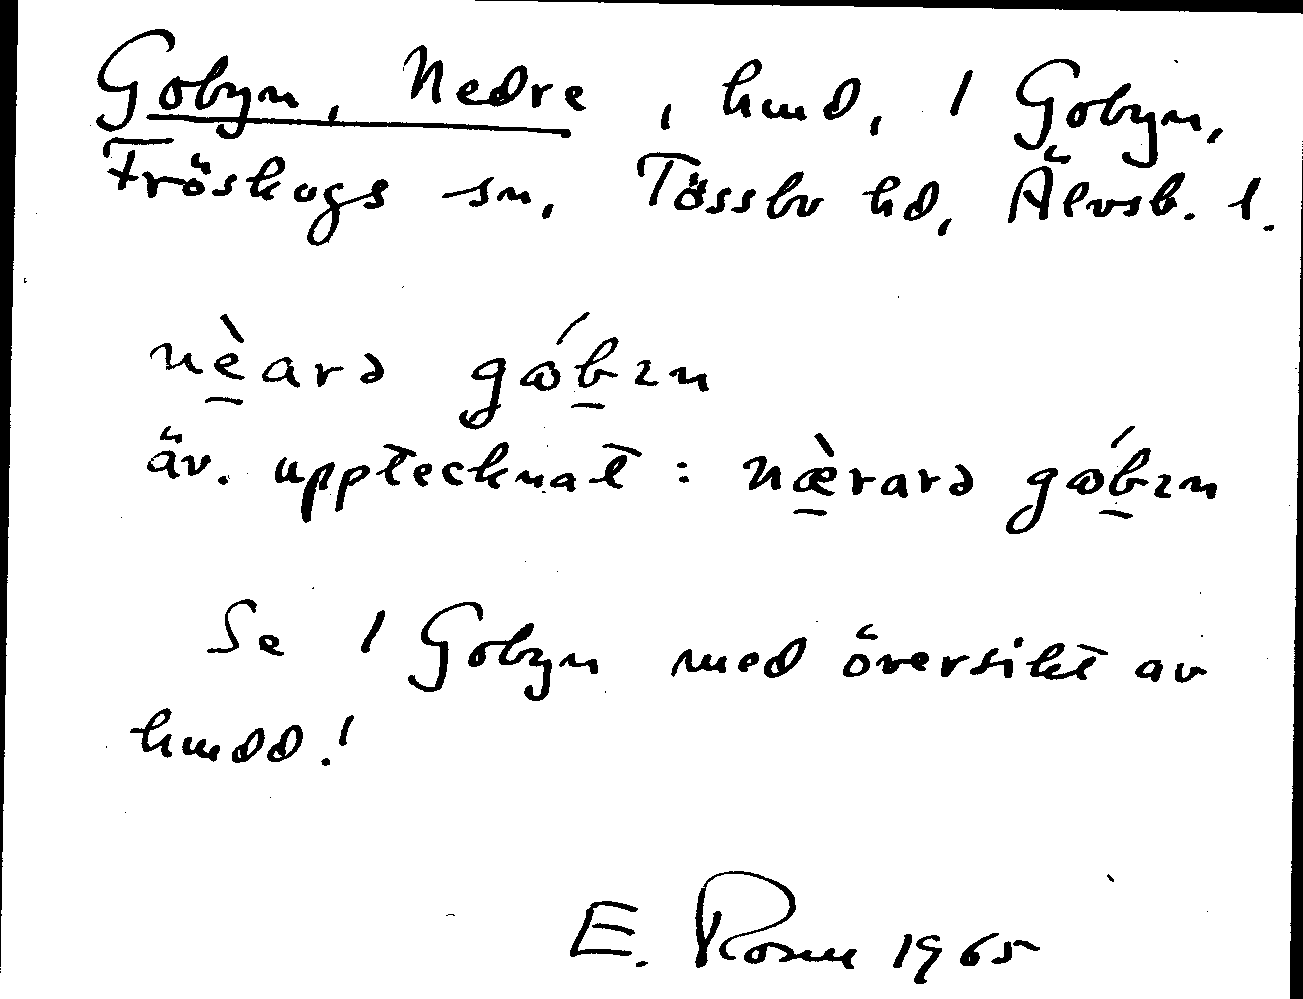 Gobyn, Nedre, hmd, 1 Gobyn,
Fröskogs sn, Tössbo hd, Älvsb. l.
nèarə góbɪn
äv. upptecknat : næ̀rarə góbɪn
Se 1 Gobyn med översikt av
hmdd.!
E. Rosm 1965